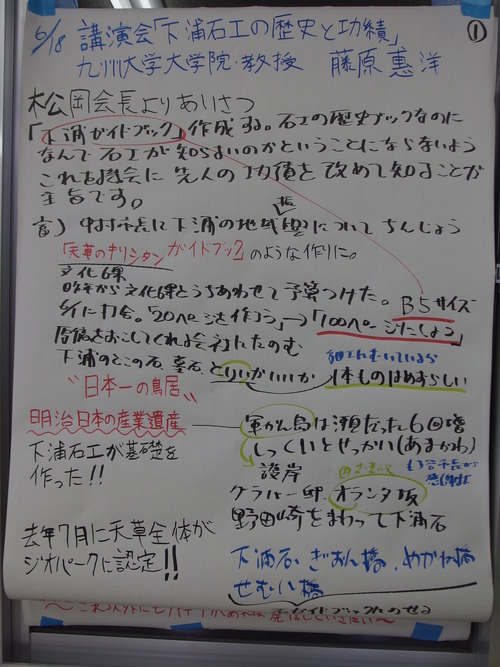 6/18 講演会「下浦石工の歴史と功績」 ①
九州大学大学院・教授 藤原惠洋
松岡会長よりあいさつ
「下浦ガイドブック」作成する。石工の歴史ブックなのに
なんで石工が知らないのかということにならないよう
これを機会に先人の功績を改めて知ることが
主旨です。
中村市長に下浦の地域振について ちんじょう
「天草のキリシタンガイドブック」のような作りに。
文化6課
昨年から文化6課とうちあわせて予算つけた。 B5サイズ
「20ページを作ろう」→「100ページにしましょう」
下浦のどこの石、墓石、とりいがいいか
1本ものはめずらしい
"日本一の鳥居"
明治日本の産業遺産
軍かん島は瀬だった6回増
しっくいとせっかい(あまかわ)
下浦石工が基礎を
作った!!
護岸
グラバー邸 オランダ坂
野田崎をまわって下浦石
去年7月に天草全体が
ジオパークに認定!!
下浦石、ぎおん橋、めがね橋